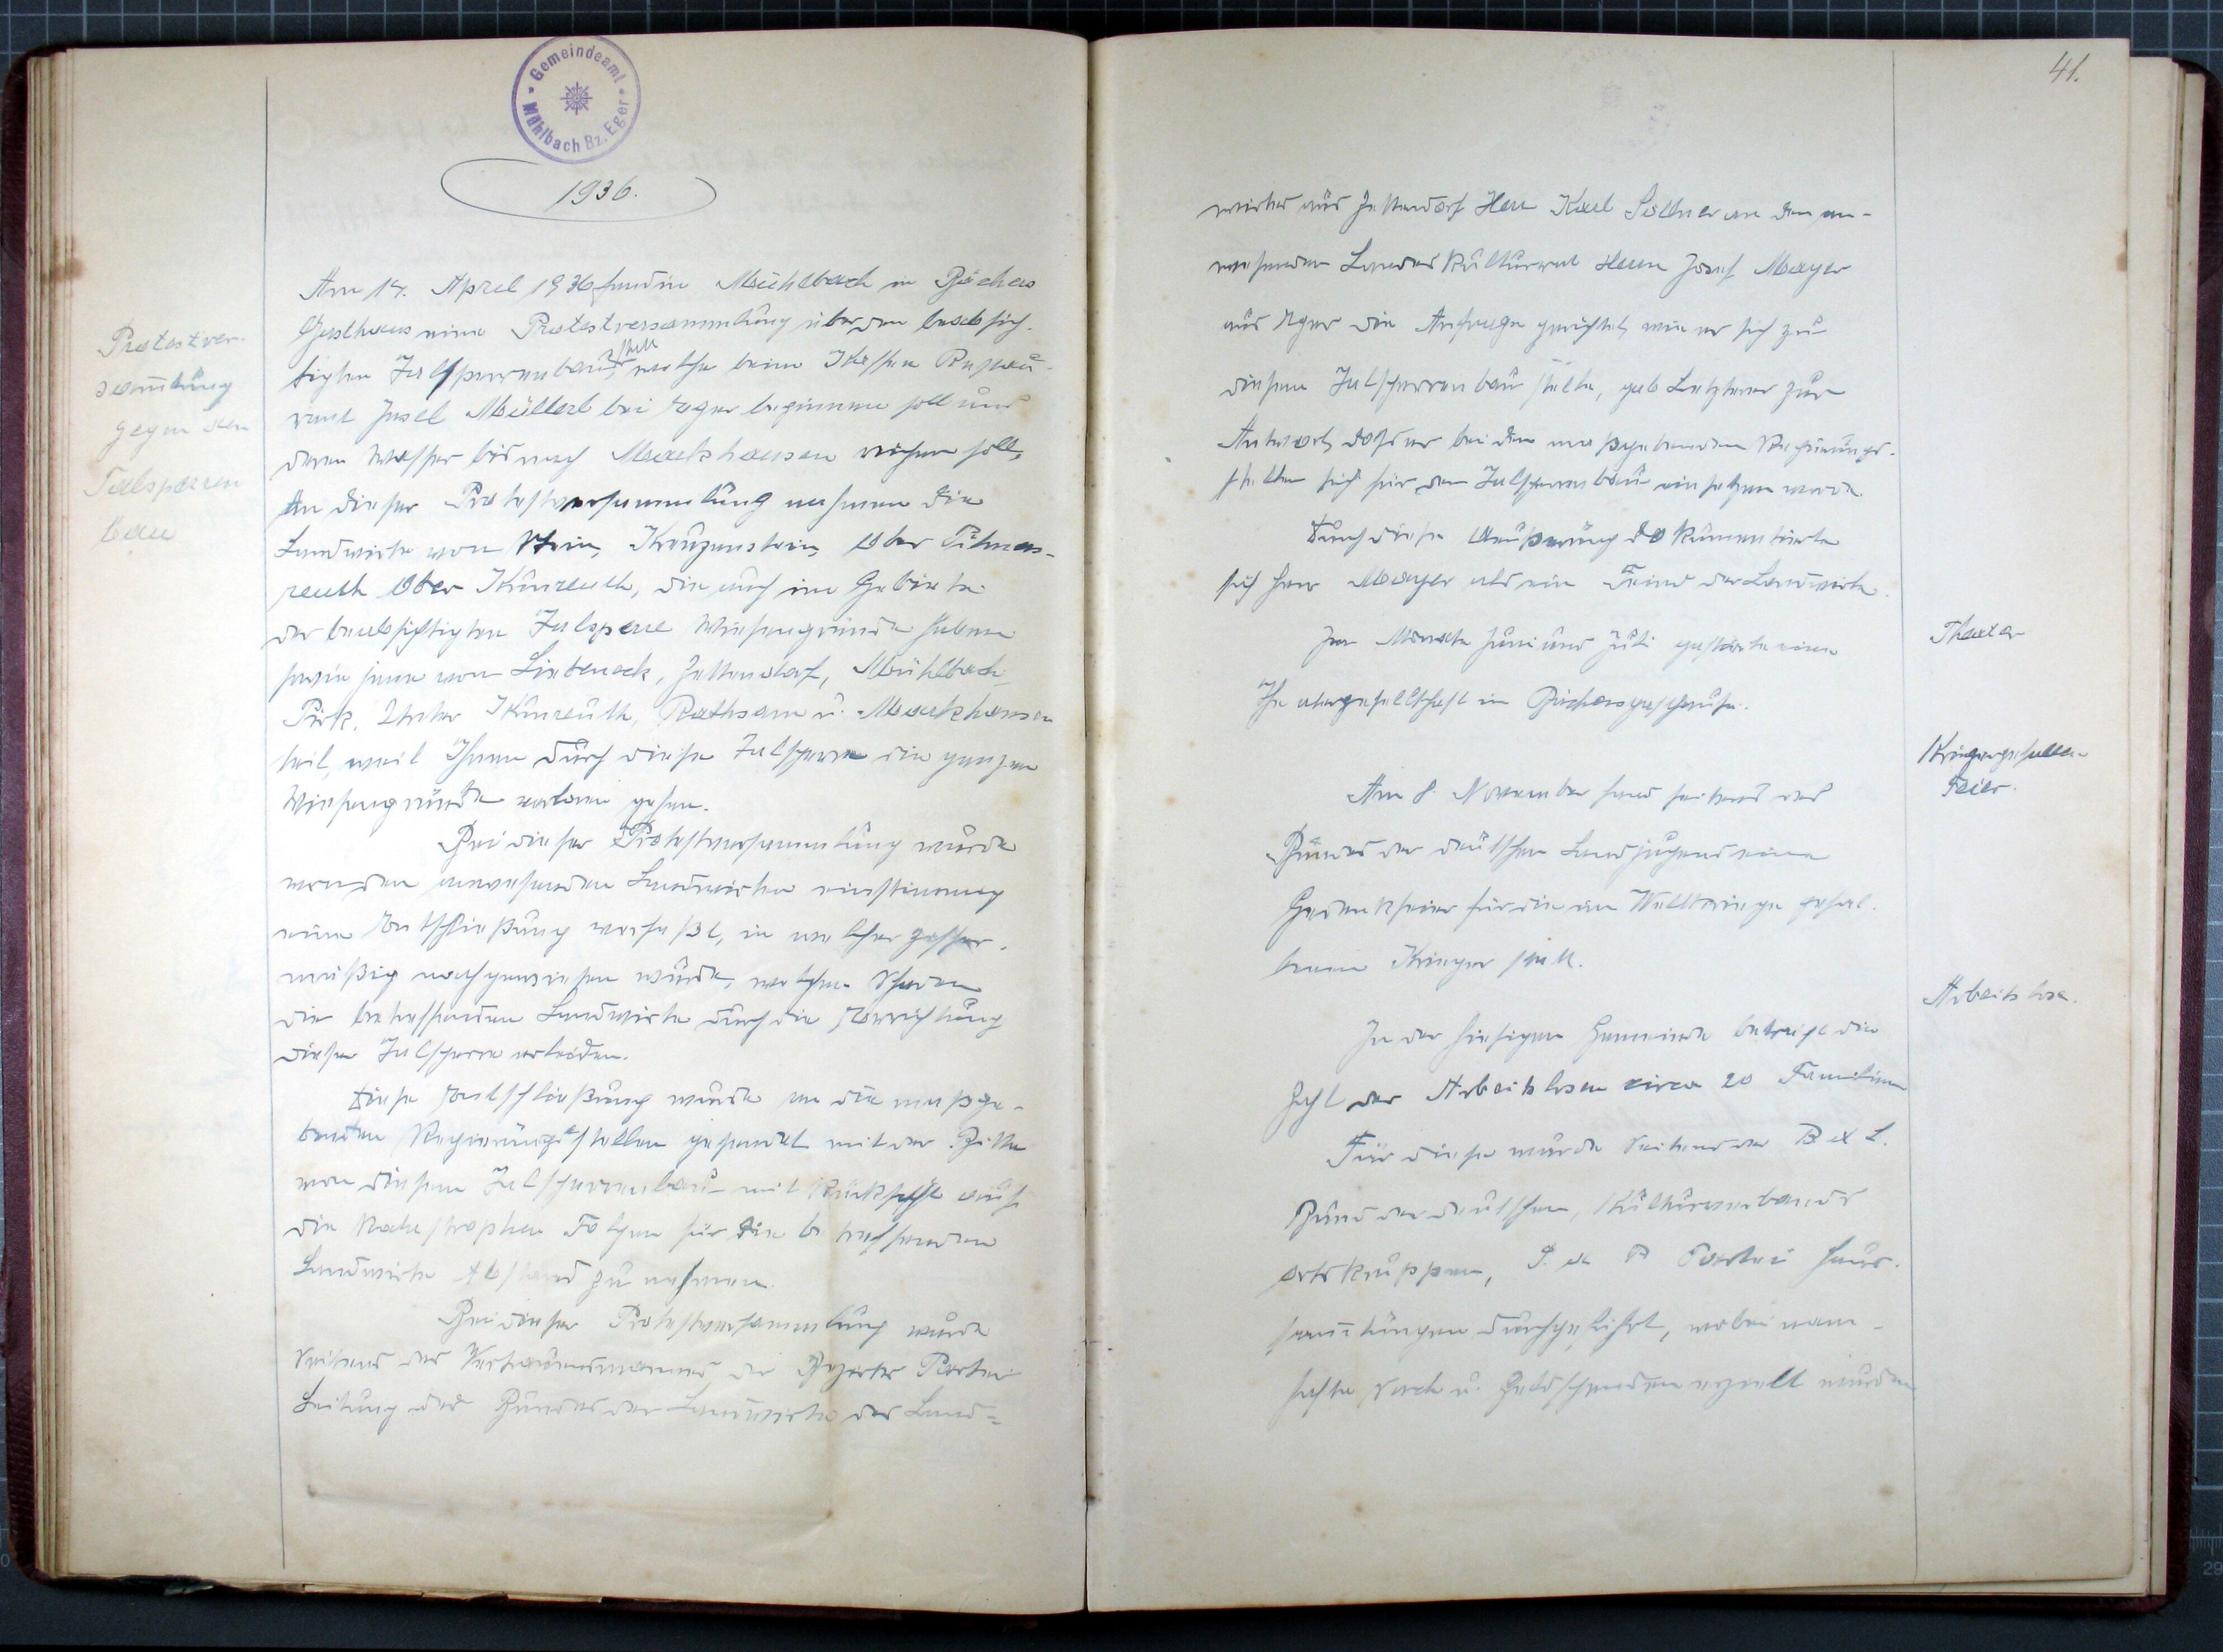 Gemeindeamt
Mühlbach Bz. Eger
1936.
Protestver-
sam̅lung
gegen den
Talsperren
bau
Am 14. April 1936 fand in Mühlbach in Bächers
Gasthaus eine Protestversammlung über den beabsich-
tigten Talsperrenbau statt, welche beim Restau-
rant Insel Müllerl bei Eger beginnen soll und
deren Wasser bis nach Markhausen reichen soll,
An dieser Protestversammlung nahmen die
Landwirte von Stein, Kreuzenstein, Ober Pilmers-
reuth Ober Kunreuth, die auch im Gebiete
der beabsichtigten Talsperre Wiesengründe haben
sowie jene von Liebeneck, Jettendorf, Mühlbach
Pirk, Unter Kunreuth, Rathsam u. Markhausen
teil, weil Ihnen durch diese Talsperre die ganzen
Wiesengründe verloren gehen.
Bei dieser Protestversammlung wurde
von den anwesenden Landwirten einstimmig
eine Entschließung verfaßt, in welcher ziffer-
mäßig nachgewiesen wurde, welchen Schaden
die betreffenden Landwirte durch die Errichtung
dieser Talsperre erleiden.
Diese Entschließung wurde an die maßge-
benden Regierungsstellen gesandt mit der Bitte
von diesem Talsperrenbau mit Rücksicht auf
die Katastrophen Folgen für die betreffenden
Landwirte Abstand zu nehmen.
Bei dieser Protestversammlung wurde
Seitens des Vertrauensmannes der Bezirks Partei
Leitung des Bundes der Landwirte des Land-
41.
wirtes aus Jettendorf Herr Karl Sollner an den an-
wesenden Landeskulturrat Herrn Josef Mayer
aus Eger die Anfrage gerichtet, wie er sich zu
diesem Talsperrenbau stelle, gab Letzterer zur
Antwort, daß er bei den maßgebenden Regierungs-
stellen sich für den Talsperrenbau einsetzen werde.
Durch diese Äußerung dokumentierte
sich Herr Mayer als ein Feind der Landwirte.
Theater
Im Monate Juni und Juli gastierte eine
Theatergesellschaft in Bächersgasthause.
Kriegergefallen
Feier.
Am 8. November fand seitens des
Bundes der deutschen Landjugend eine
Gedenkfeier für die im Weltkriege gefal-
lenen Krieger statt.
Arbeitslose.
In der hiesigen Gemeinde beträgt die
Zahl der Arbeitslosen circa 20 Familien
Für diese wurde Seitens der B d L.
Bund der deutschen, Kulturverbands
ortsgruppen, S. d P Partei Haus-
sam̅lungen durchgeführt, wobei nam-
hafte Sach u. Geldspenden erzielt wurden